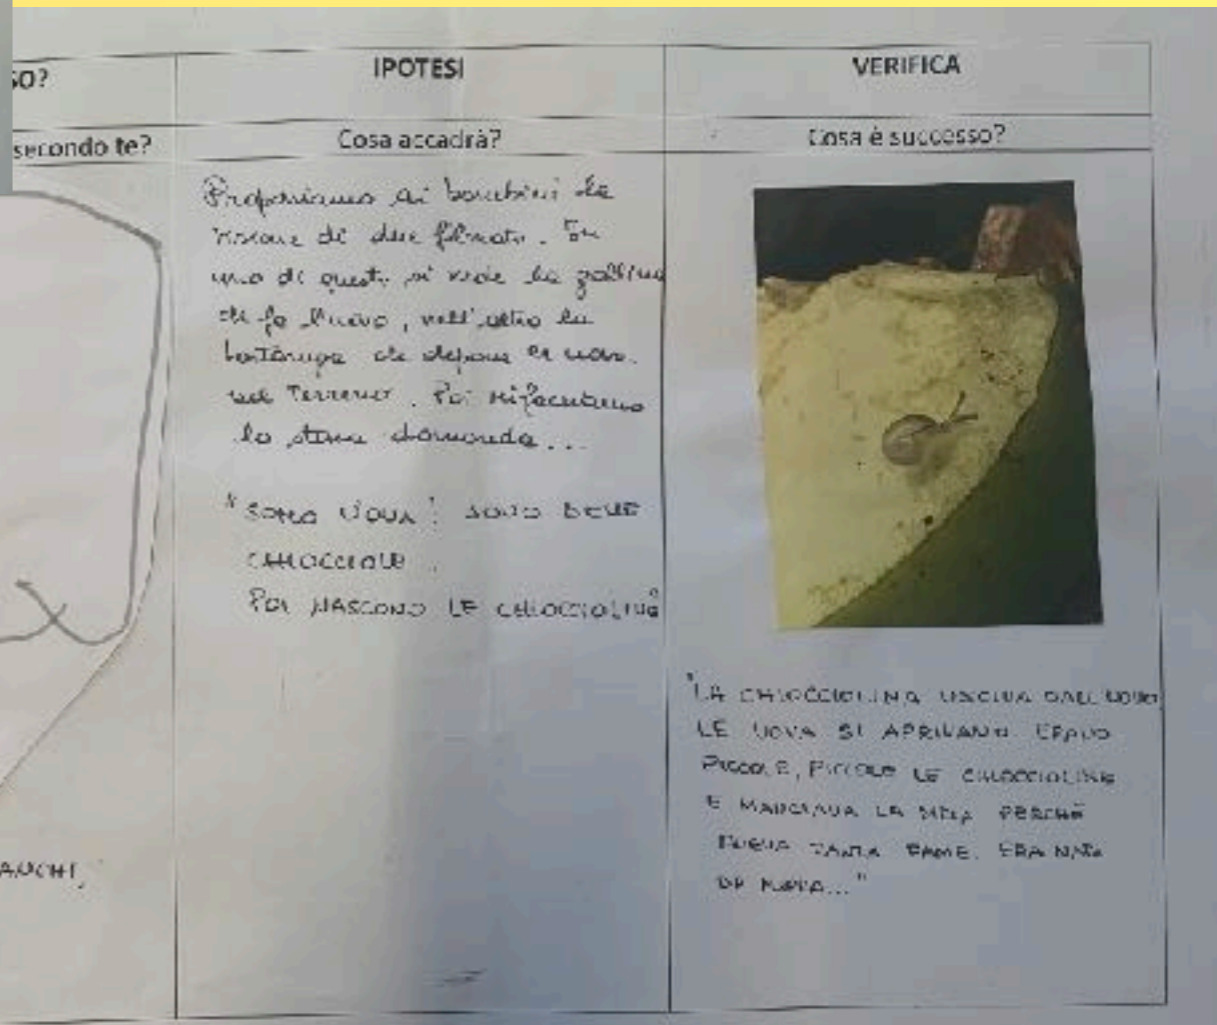 SO?
secondo te?
BIANCHI,
IPOTESI
Cosa accadrà?
Proponiamo ai bambini la
visione di due filmati. In
uno di questi si vede la gallina
che fa l'uovo, nell'altro la
tartaruga che depone le uova
nel terreno. Poi rifacciamo
la stessa domanda...
"SONO UOVA! SONO DELLE
CHIOCCIOLE.
POI NASCONO LE CHIOCCIOLINE"
VERIFICA
Cosa è successo?
"LA CHIOCCIOLINA USCIVA DALL'UOVO
LE UOVA SI APRIVANO ERANO
PICCOLE, PICCOLE LE CHIOCCIOLINE
E MANGIAVA LA MELA PERCHÈ
AVEVA TANTA FAME. ERA NATA
DA POCO..."